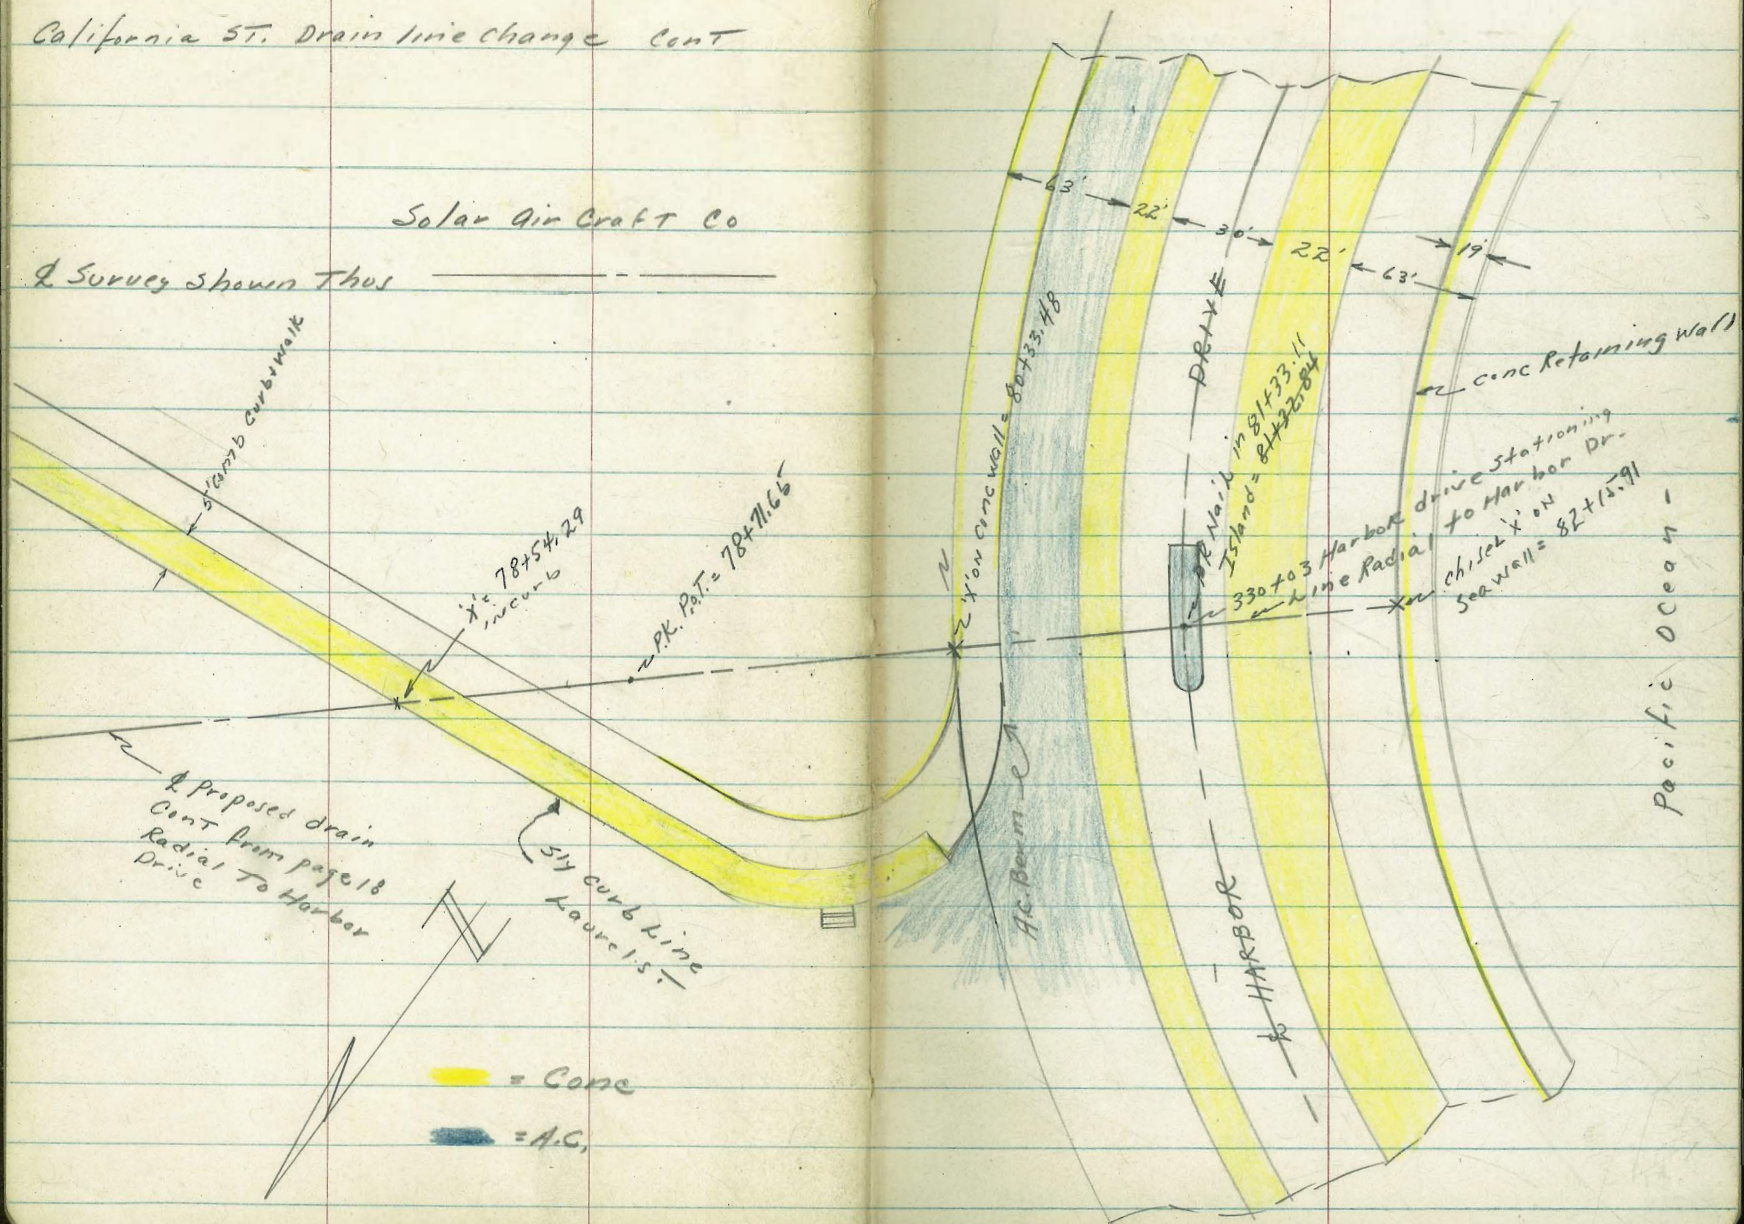 California ST. Drain line change Cont
Solar Air Craft Co
℄ Survey shown Thus
5' comb curb+walk
'X' = 78+54.29
in curb
P.K. P.O.T. = 78+71.65
℄ Proposed drain
Cont from page 18
Radial To Harbor
Drive
S'ly curb Line
Laurel ST.
= Conc
= A.C.
63'
22'
30'
22'
63'
19'
'X' on conc wall = 80+33.48
DRIVE
Nail in 81+33.11
Island = 81+32.84
conc Retaining Wall
330+03 Harbor drive stationing
Line Radial to Harbor Dr.
chisel 'X' on
sea wall = 82+15.91
A.C. Berm
℄ HARBOR
Pacific Ocean -